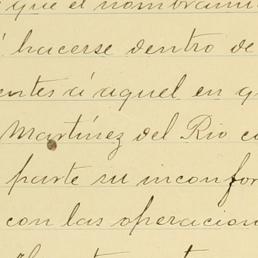 que el nombrami
á hacerse dentro de
entes á aquel en q
Martínez del Rio co
parte su inconfor
con las operacion